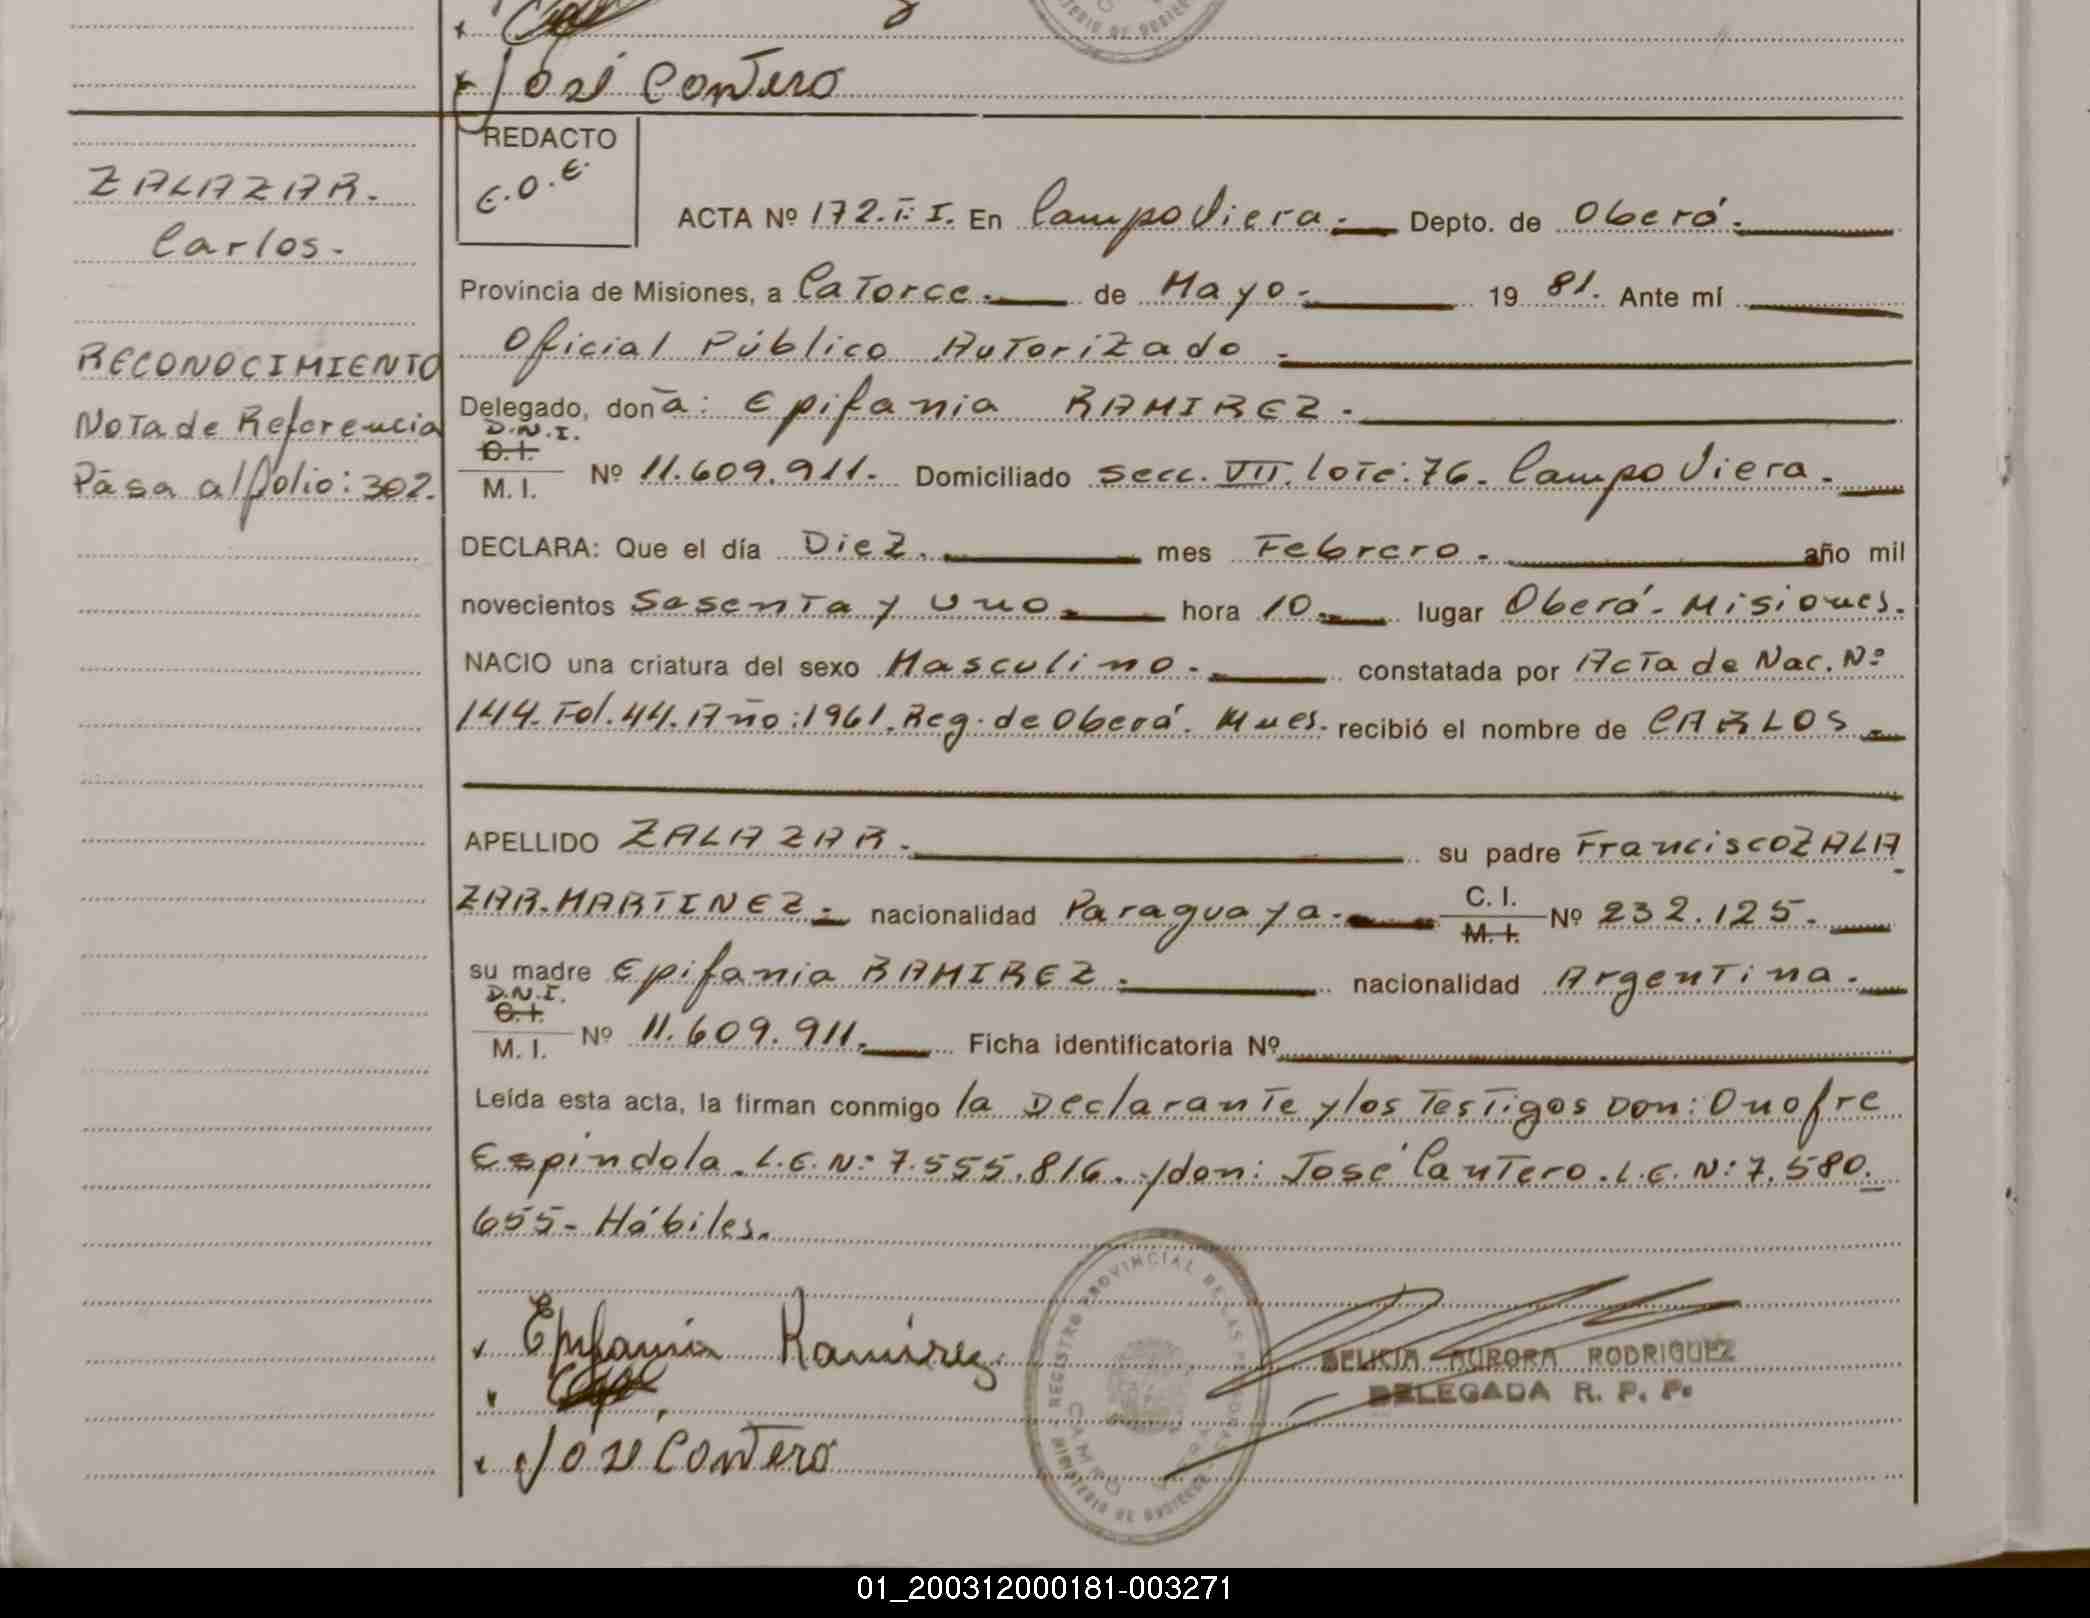 José Contero
REDACTO
E.O.E.
ZALAZAR.
Carlos.-
RECONOCIMIENTO
Nota de Referencia
Pása al folio: 302.
ACTA Nº 172. T: I. En Campo Viera.- Depto. de Oberá.-
Provincia de Misiones, a Catorce.- de Mayo.- 19 81. Ante mí
Oficial Público Autorizado.-
Delegado, don a: Epifania RAMIREZ.-
D.N.I.
C.I.
M. I. Nº 11.609.911.- Domiciliado Secc. VII. lote: 76. Campo Viera.-
DECLARA: Que el día Diez.- mes Febrero.- año mil
novecientos Sesenta y Uno.- hora 10.- lugar Oberá- Misiones.
NACIO una criatura del sexo Masculino.- constatada por Acta de Nac. Nº
144. Fol. 44. Año: 1961. Reg. de Oberá. Mnes. recibió el nombre de CARLOS.-
APELLIDO ZALAZAR.- su padre Francisco ZALA
ZAR. MARTINEZ.- nacionalidad Paraguaya.- C. I. Nº 232.125.-
M. I.
su madre Epifania RAMIREZ.- nacionalidad Argentina.-
D.N.I.
C.I.
M. I. Nº 11.609.911.- Ficha identificatoria Nº
Leída esta acta, la firman conmigo la Declarante y los Testigos Don: Onofre
Espíndola. L.E. N: 7.555.816. y don: José Cantero. L.E. N: 7.580.
655- Hábiles.
Epifania Ramirez
José Contero
REGISTRO PROVINCIAL DE LAS PERSONAS
MINISTERIO DE GOBIERNO
CAMPO
AURORA RODRIGUEZ
DELEGADA R. P. P.
01_200312000181-003271